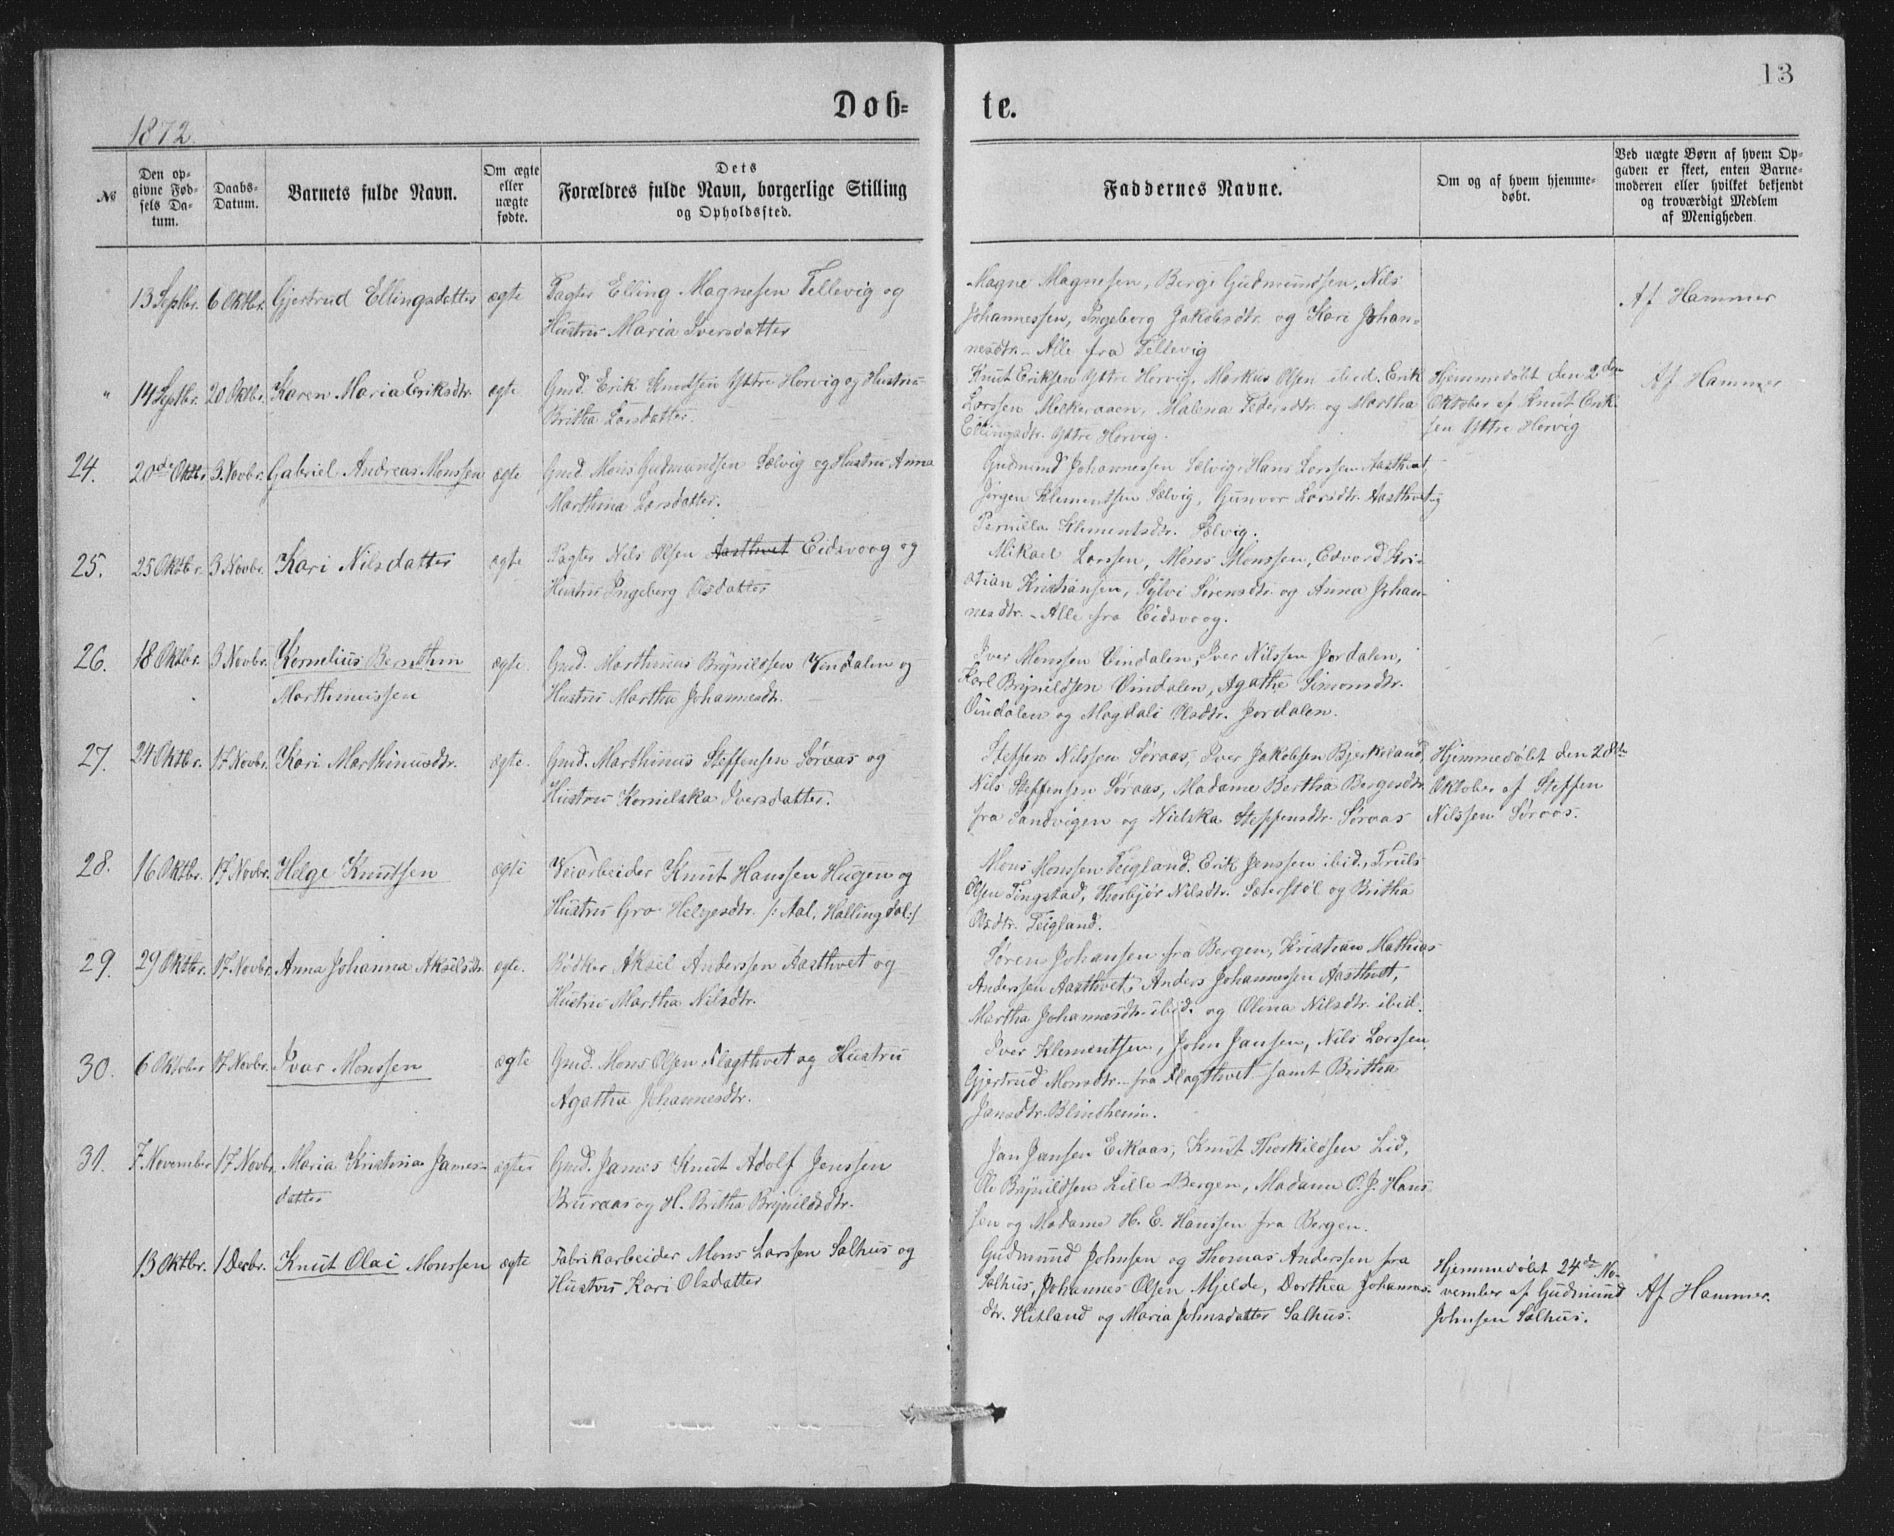 13
Døb- te.
1872.
№
Den op-
givne Fød-
sels Da-
tum.
Daabs-
Datum.
Barnets fulde Navn.
Om ægte
eller
uægte
fødte.
Dets
Forældres fulde Navn, borgerlige Stilling
og Opholdssted.
Faddernes Navne.
Om og af hvem hjemme-
døbt.
Ved uægte Børn af hvem Op-
gaven er skeet, enten Barne-
moderen eller hvilket bekjendt
og troværdigt Medlem
af Menigheden.
13 Septbr. 6 Oktbr. Gjertrud Ellingsdatter ægte
Pagter Elling Magnesen Tellevig og
Hustru Maria Iversdatter
Magne Magnesen, Berge Gudmundsen, Nils
Johannessen, Ingeborg Jakobsdtr. og Kari Johan-
nesdtr. - Alle fra Tellevig
Af Hammer
" 14 Septbr. 20 Oktbr. Karen Maria Eriksdtr. ægte
Gmd. Erik Knudsen Yttre Horvig og Hustru
Britha Larsdatter.
Knut Eriksen Yttre Horvig, Markus Olsen ibid. Erik
Larssen, Malena Pedersdtr. og Martha
Ellingsdtr. Yttre Horvig.
Hjemmedøbt den 2den
Oktober af Knut Erik-
sen Yttre Horvig
Af Hammer
24. 20de Oktbr. 3 Novbr. Gabriel Andreas Monssen ægte
Gmd. Mons Gudmundsen Sælvig og Hustru Anna
Marthina Larsdatter.
Gudmund Johannessen Sælvig, Hans Larssen Aasthvet,
Jørgen Klementsen Sælvig, Gunvor Larsdtr. Aasthvet og
Pernilla Klementsdtr. Sælvig.
25. 25 Oktbr. 3 Novbr. Kari Nilsdatter ægte
Pagter Nils Olsen Aasthvet Eidsvaag og
Hustru Ingeborg Olsdatter
Mikael Larssen, Mons Monssen, Edvard Kri-
stian Kristiansen, Sylvi Sørensdtr. og Anna Johan-
nesdtr. - Alle fra Eidsvaag.
26. 18 Oktbr. 3 Novbr. Kornelius Bernthin
Marthinussen
ægte
Gmd. Marthinus Brynildsen Vindalen og
Hustru Martha Johannesdtr.
Iver Monssen Vindalen, Iver Nilssen Jordalen,
Karl Brynildsen Vindalen, Agathe Simonsdtr.
Vindalen og Magdali Olsdtr. Jordalen.
27. 24 Oktbr. 17 Novbr. Kari Marthinusdtr. ægte.
Gmd. Marthinus Steffensen Søraas og
Hustru Kornilska Iversdatter.
Steffen Nilssen Søraas, Iver Jakobsen Bjerkeland,
Nils Steffensen Søraas, Madame Bertha Bergesdtr.
fra Sandvigen og Nielska Steffensdtr. Søraas
Hjemmedøbt den 28de
Oktober af Steffen
Nilssen Søraas.
28. 16 Oktbr. 17 Novbr. Helge Knutsen ægte
Veiarbeider Knut Hanssen Hugen og
Hustru Gro Helgesdtr. /: Aal, Hallingdal :/
Mons Monssen Teigland. Erik Jenssen ibid., Truls
Olsen Tingstad, Thorbjør Nilsdtr. Sæterstøl og Britha
Olsdtr. Teigland.
29. 29 Oktbr. 17 Novbr. Anna Johanna Akselsdtr. ægte.
Bødker Aksel Anderssen Aasthvet og
Hustru Martha Nilsdtr.
Søren Johansen fra Bergen, Kristian Mathias
Anderssen Aasthvet, Anders Johannessen Aasthvet,
Martha Johannesdtr. ibid. og Olina Nilsdtr. ibid.
30. 6 Oktober 17 Novbr. Ivar Monssen ægte
Gmd. Mons Olsen Flagthvet og Hustru
Agatha Johannesdtr.
Iver Klementsen, John Jansen, Nils Larssen,
Gjertrud Monsdtr. - fra Flagthvet samt Britha
Jansdtr. Blindheim.
31. 7 November 17 Novbr. Maria Kristina James-
datter
ægte
Gmd. James Knut Adolf Jenssen
Bruraas og H. Britha Brynildsdtr.
Jan Jansen Eikaas, Knut Thorkildsen Lid,
Ole Brynildsen Lille-Bergen, Madame O. J. Hans-
sen og Madame H. E. Hanssen fra Bergen.
13 Oktbr. 1 Decbr. Knut Olai Monssen ægte
Fabrikarbeider Mons Larssen Salhus og
Hustru Kari Olsdatter
Gudmund Johnsen og Thomas Anderssen fra
Salhus, Johannes Olsen Mjelde, Dorthea Johannes-
dtr. Hitland og Maria Johnsdatter Salhus.
Hjemmedøbt 24de No-
vember af Gudmund
Johnsen Salhus.
Af Hammer.